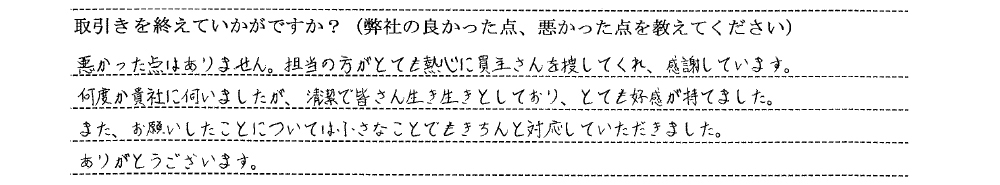 取引きを終えていかがですか？（弊社の良かった点、悪かった点を教えてください）
悪かった点はありません。担当の方がとても熱心に買主さんを捜してくれ、感謝しています。
何度か貴社に伺いましたが、清潔で皆さん生き生きとしており、とても好感が持てました。
また、お願いしたことについては小さなことでもきちんと対応していただきました。
ありがとうございます。